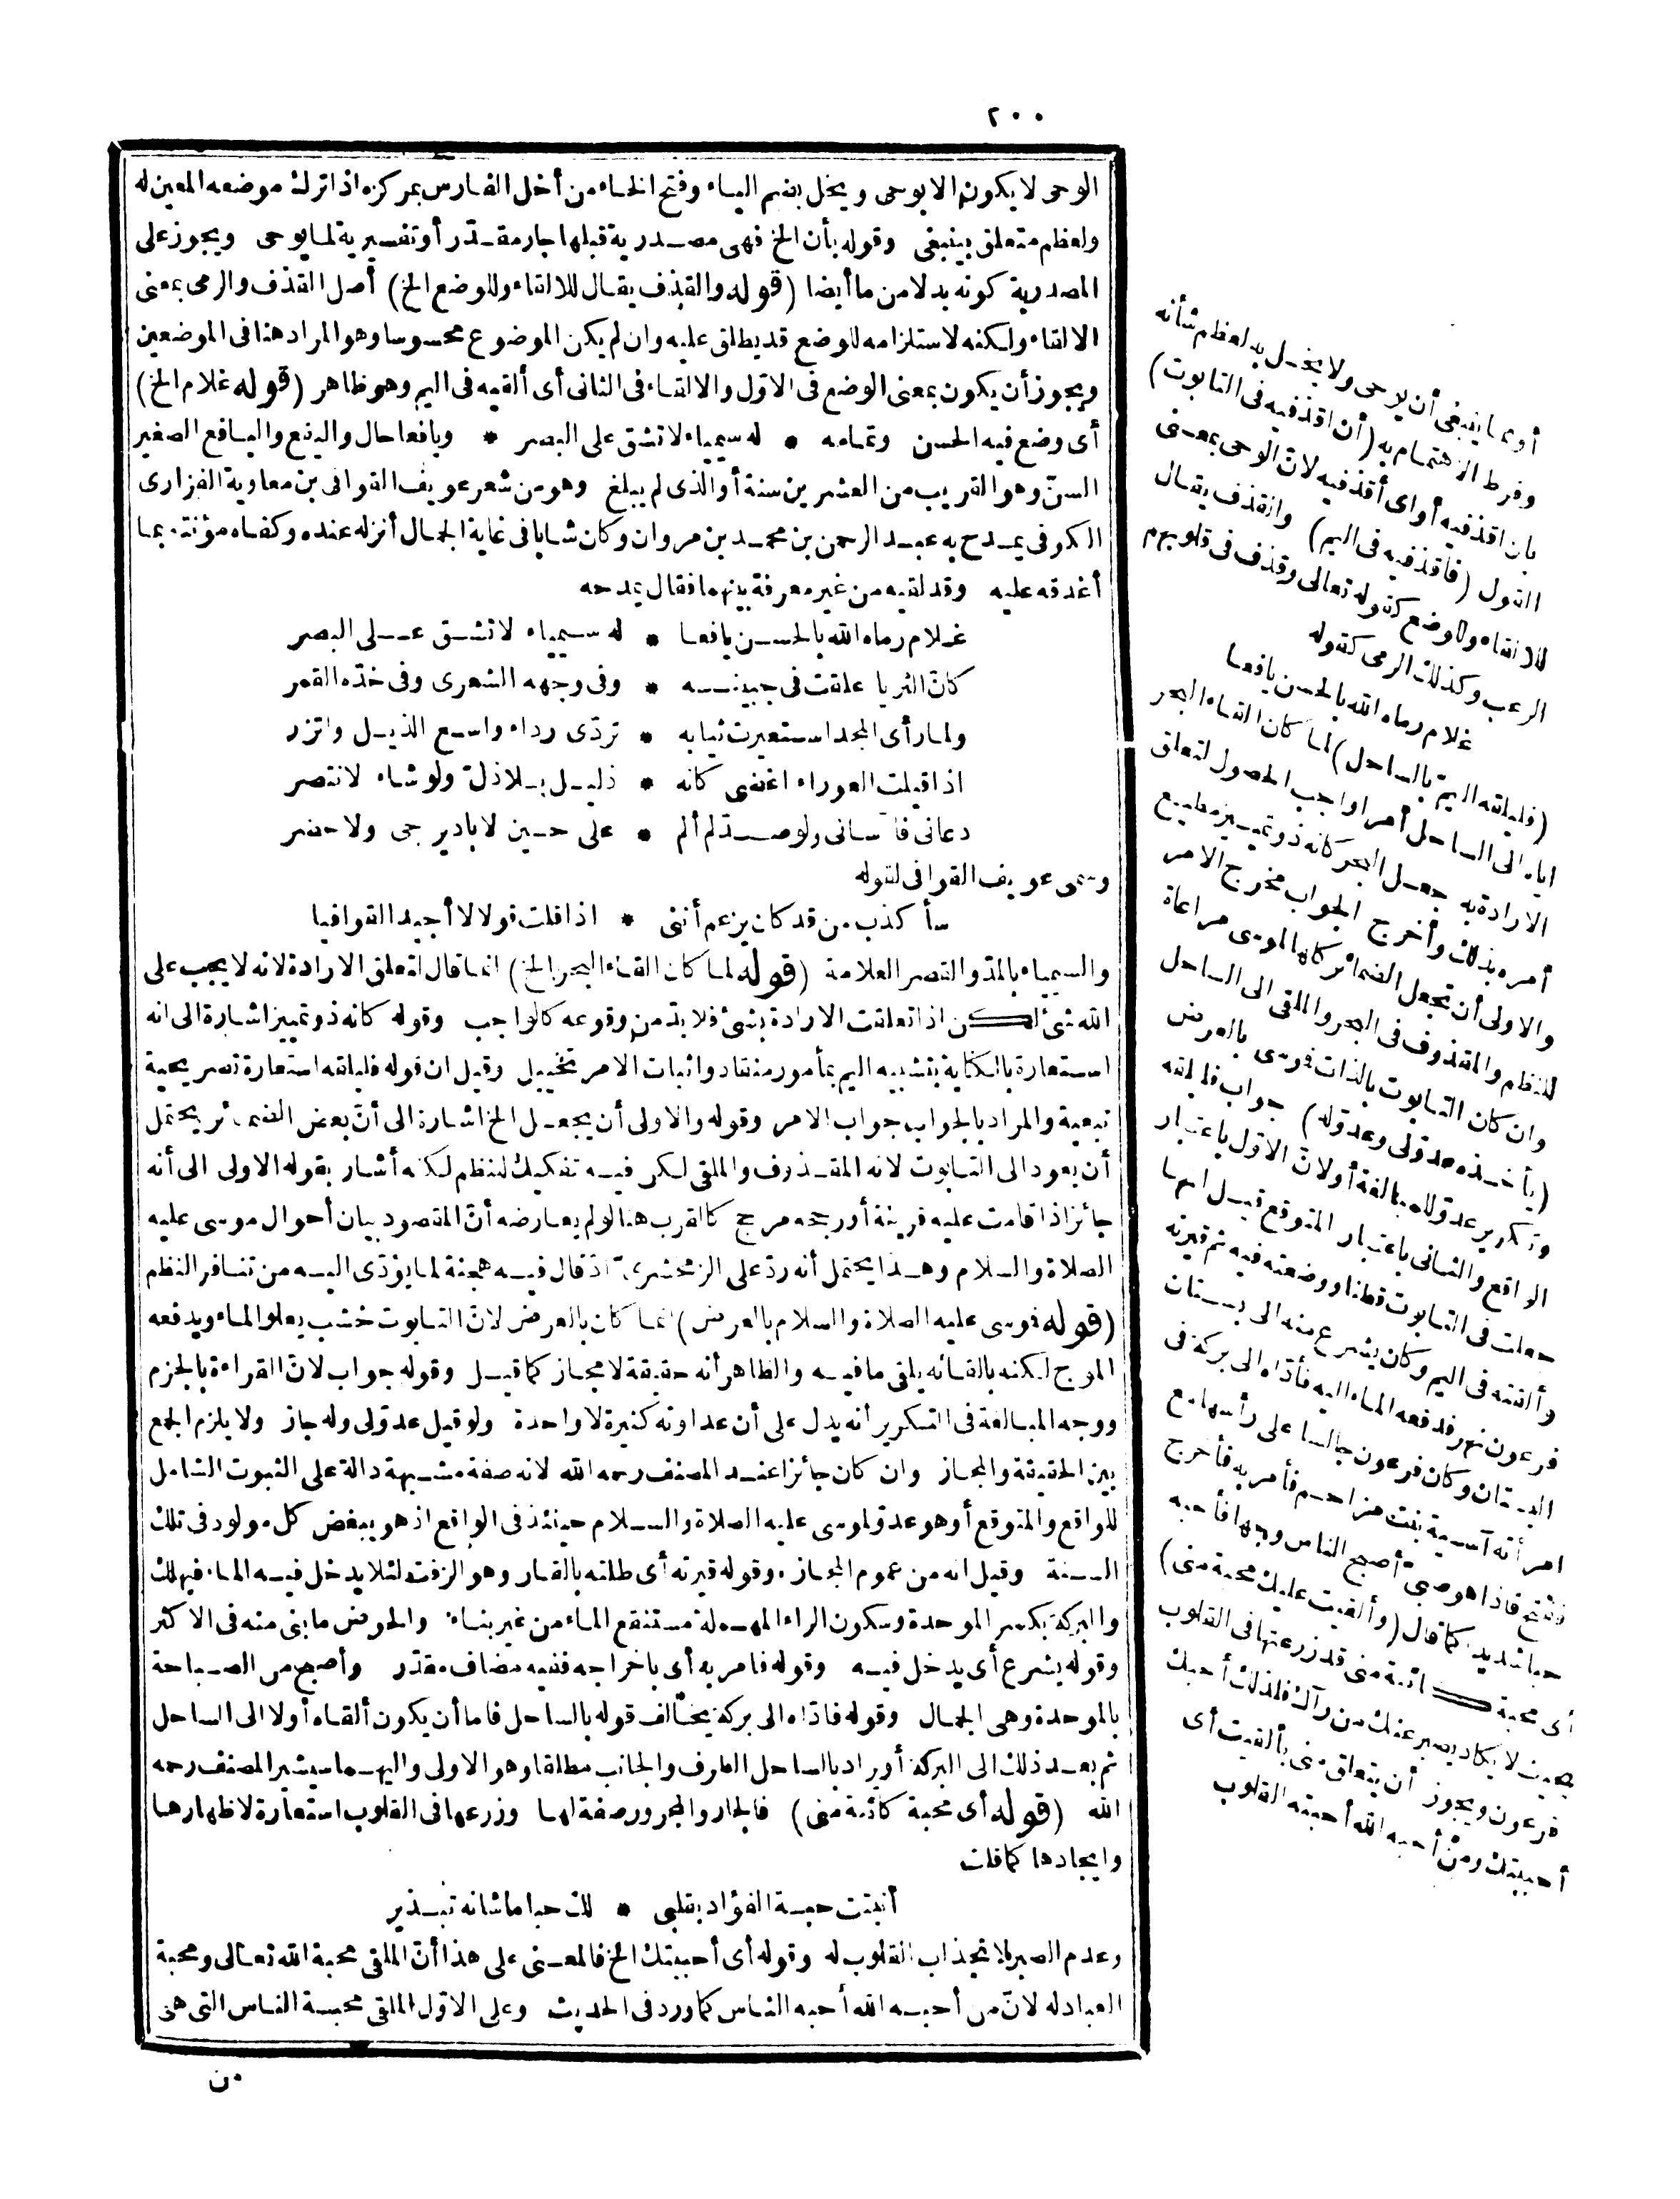 ٢٠٠
الوحى لا يكون الا بوحى ويخل بضم الياء وفتح الخاء من أخل الفارس بمركزه اذا ترك موضعه المعين له
ولعظم متعلق بينبغى وقوله بأن الخ فهى مصدرية قبلها جار مقدّر أو تفسيرية لما يوحى ويجوز على
المصدرية كونه بدلا من ما أيضا (قوله والقذف يقال للالقاء وللوضع الخ) أصل القذف والرمى بمعنى
الالقاء ولكنه لاستلزامه للوضع قد يطلق عليه وان لم يكن الموضوع محسوسا وهو المراد هنا فى الموضعين
ويجوز أن يكون بمعنى الوضع فى الاوّل والالقاء فى الثانى أى ألقيه فى اليم وهو ظاهر (قوله غلام الخ)
أى وضع فيه الحسن وتمامه * له سيمياء لا تشق على البصر * ويافعا حال واليفع واليافع الصغير
السنّ وهو القريب من العشرين سنة أو الذى لم يبلغ وهو من شعر عويف القوافى بن معاوية الفزارى
الكوفى يمدح به عبد الرحمن بن محمد بن مروان وكان شابا فى غاية الجمال أنزله عنده وكفاه مؤنته بما
أغدقه عليه وقد لقيه من غير معرفة بينهما فقال يمدحه
غلام رماه الله بالحسن يافعا * له سيمياء لا تشق على البصر
كأنّ الثريا علقت فى جبينه * وفى وجهه الشعرى وفى خدّه القمر
ولما رأى المجد استعيرت ثيابه * تردّى رداء واسع الذيل واتزر
اذا قيلت العوراء اغضى كانه * ذليل بلا ذلّ ولو شاء لانتصر
دعانى فآسانى ولو صدّ لم ألم * على حين لا باد يرجى ولا حضر
وسمى عويف القوافى لقوله
سأكذب من قد كان يزعم أننى * اذا قلت قولا لا أجيد القوافيا
والسيمياء بالمدّ والقصر العلامة (قوله لما كان القاء البحر الخ) انما قال لتعلق الارادة لانه لا يجب على
الله شئ لكن اذا تعلقت الارادة بشئ فلا بدّ من وقوعه كالواجب وقوله كانه ذو تمييز اشارة الى انه
استعارة بالكناية بتشبيه اليم بمأمور منقاد واثبات الامر تخييل وقيل ان قوله فليلقه استعارة تصريحية
تبعية والمراد بالجواب جواب الامر وقوله والاولى أن يجعل الخ اشارة الى أنّ بعض الضمائر يحتمل
أن يعود الى التابوت لانه المقذوف والملقى لكن فيه تفكيك للنظم لكنه أشار بقوله الاولى الى أنه
جائز اذا قامت عليه قرينة أو رجحه مرجح كالقرب هنا لو لم يعارضه أنّ المقصود بيان أحوال موسى عليه
الصلاة والسلام وهذا يحتمل أنه ردّ على الزمخشرىّ اذ قال فيه هجنة لما يؤدّى اليه من تنافر النظم
(قوله فموسى عليه الصلاة والسلام بالعرض) انما كان بالعرض لانّ التابوت خشب يعلو الماء ويدفعه
الموج لكنه بالقائه يلقى ما فيه والظاهر أنه حقيقة لا مجاز كما قيل وقوله جواب لانّ القراءة بالجزم
ووجه المبالغة فى التكرير أنه يدل على أن عداوته كثيرة لا واحدة ولو قيل عدوّ لى وله جاز ولا يلزم الجمع
بين الحقيقة والمجاز وان كان جائزا عند المصنف رحمه الله لانه صفة مشبهة دالة على الثبوت الشامل
للواقع والمتوقع أو هو عدوّ لموسى عليه الصلاة والسلام حينئذ فى الواقع اذ هو يبغض كل مولود فى تلك
السنة وقيل انه من عموم المجاز وقوله قيرته أى طلته بالقار وهو الزفت لئلا يدخل فيه الماء فيهلك
والبركة بكسر الموحدة وسكون الراء المهملة مستنقع الماء من غير بناء والحوض ما بنى منه فى الاكثر
وقوله يشرع أى يدخل فيه وقوله فامر به أى باخراجه ففيه مضاف مقدّر وأصبح من الصباحة
بالموحدة وهى الجمال وقوله فاداه الى بركة يخالف قوله بالساحل فاما أن يكون ألقاه أولا الى الساحل
ثم بعد ذلك الى البركة أو يراد بالساحل الطرف والجانب مطلقا وهو الاولى واليهما سيشير المصنف رحمه
الله (قوله أى محبة كائنة منى) فالجار والمجرور صفة لها وزرعها فى القلوب استعارة لاظهارها
وايجادها كما قلت
أنبتت حبة الفؤاد بقلبى * لك حبا ما شانه تبذير
وعدم الصبر لانجذاب القلوب له وقوله أى أحببتك الخ فالمعنى على هذا أنّ الملقى محبة الله تعالى ومحبة
العباد له لانّ من أحبه الله أحبه الناس كما ورد فى الحديث وعلى الاوّل الملقى محبة الناس التى هى
من
أو مما ينبغى أن يوحى ولا يخل به لعظم شأنه
وفرط الاهتمام به (أن اقذفيه فى التابوت)
بان اقذفيه أو أى أقذفيه لانّ الوحى بمعنى
القول (فاقذفيه فى اليم) والقذف يقال
للالقاء وللوضع كقوله تعالى وقذف فى قلوبهم
الرعب وكذلك الرمى كقوله
غلام رماه الله بالحسن يافعا
(فليلقه اليمّ بالساحل) لما كان القاء البحر
اياه الى الساحل أمرا واجب الحصول لتعلق
الارادة به جعل البحر كانه ذو تمييز مطيع
أمره بذلك وأخرج الجواب مخرج الامر
والاولى أن تجعل الضمائر كلها لموسى مراعاة
للنظم والمقذوف فى البحر والملقى الى الساحل
وان كان التابوت بالذات فموسى بالعرض
(يأخذه عدوّ لى وعدوّ له) جواب فليلقه
وتكرير عدوّ للمبالغة أو لانّ الاوّل باعتبار
الواقع والثانى باعتبار المتوقع قيل انها
جعلت فى التابوت قطنا ووضعته فيه ثم قيرته
وألقته فى اليم وكان يشرع منه الى بستان
فرعون نهر فدفعه الماء اليه فأدّاه الى بركة فى
البستان وكان فرعون جالسا على رأسها مع
امرأته آسية بنت مزاحم فأمر به فأخرج
ففتح فاذا هو صبى أصبح الناس وجها فأحبه
حبا شديدا كما قال (وألقيت عليك محبة منى)
أى محبة كائنة منى قد زرعتها فى القلوب
بحيث لا يكاد يصبر عنك من رآك فلذلك أحبك
فرعون ويجوز أن يتعلق منى بألقيت أى
أحببتك ومن أحبه الله أحبته القلوب